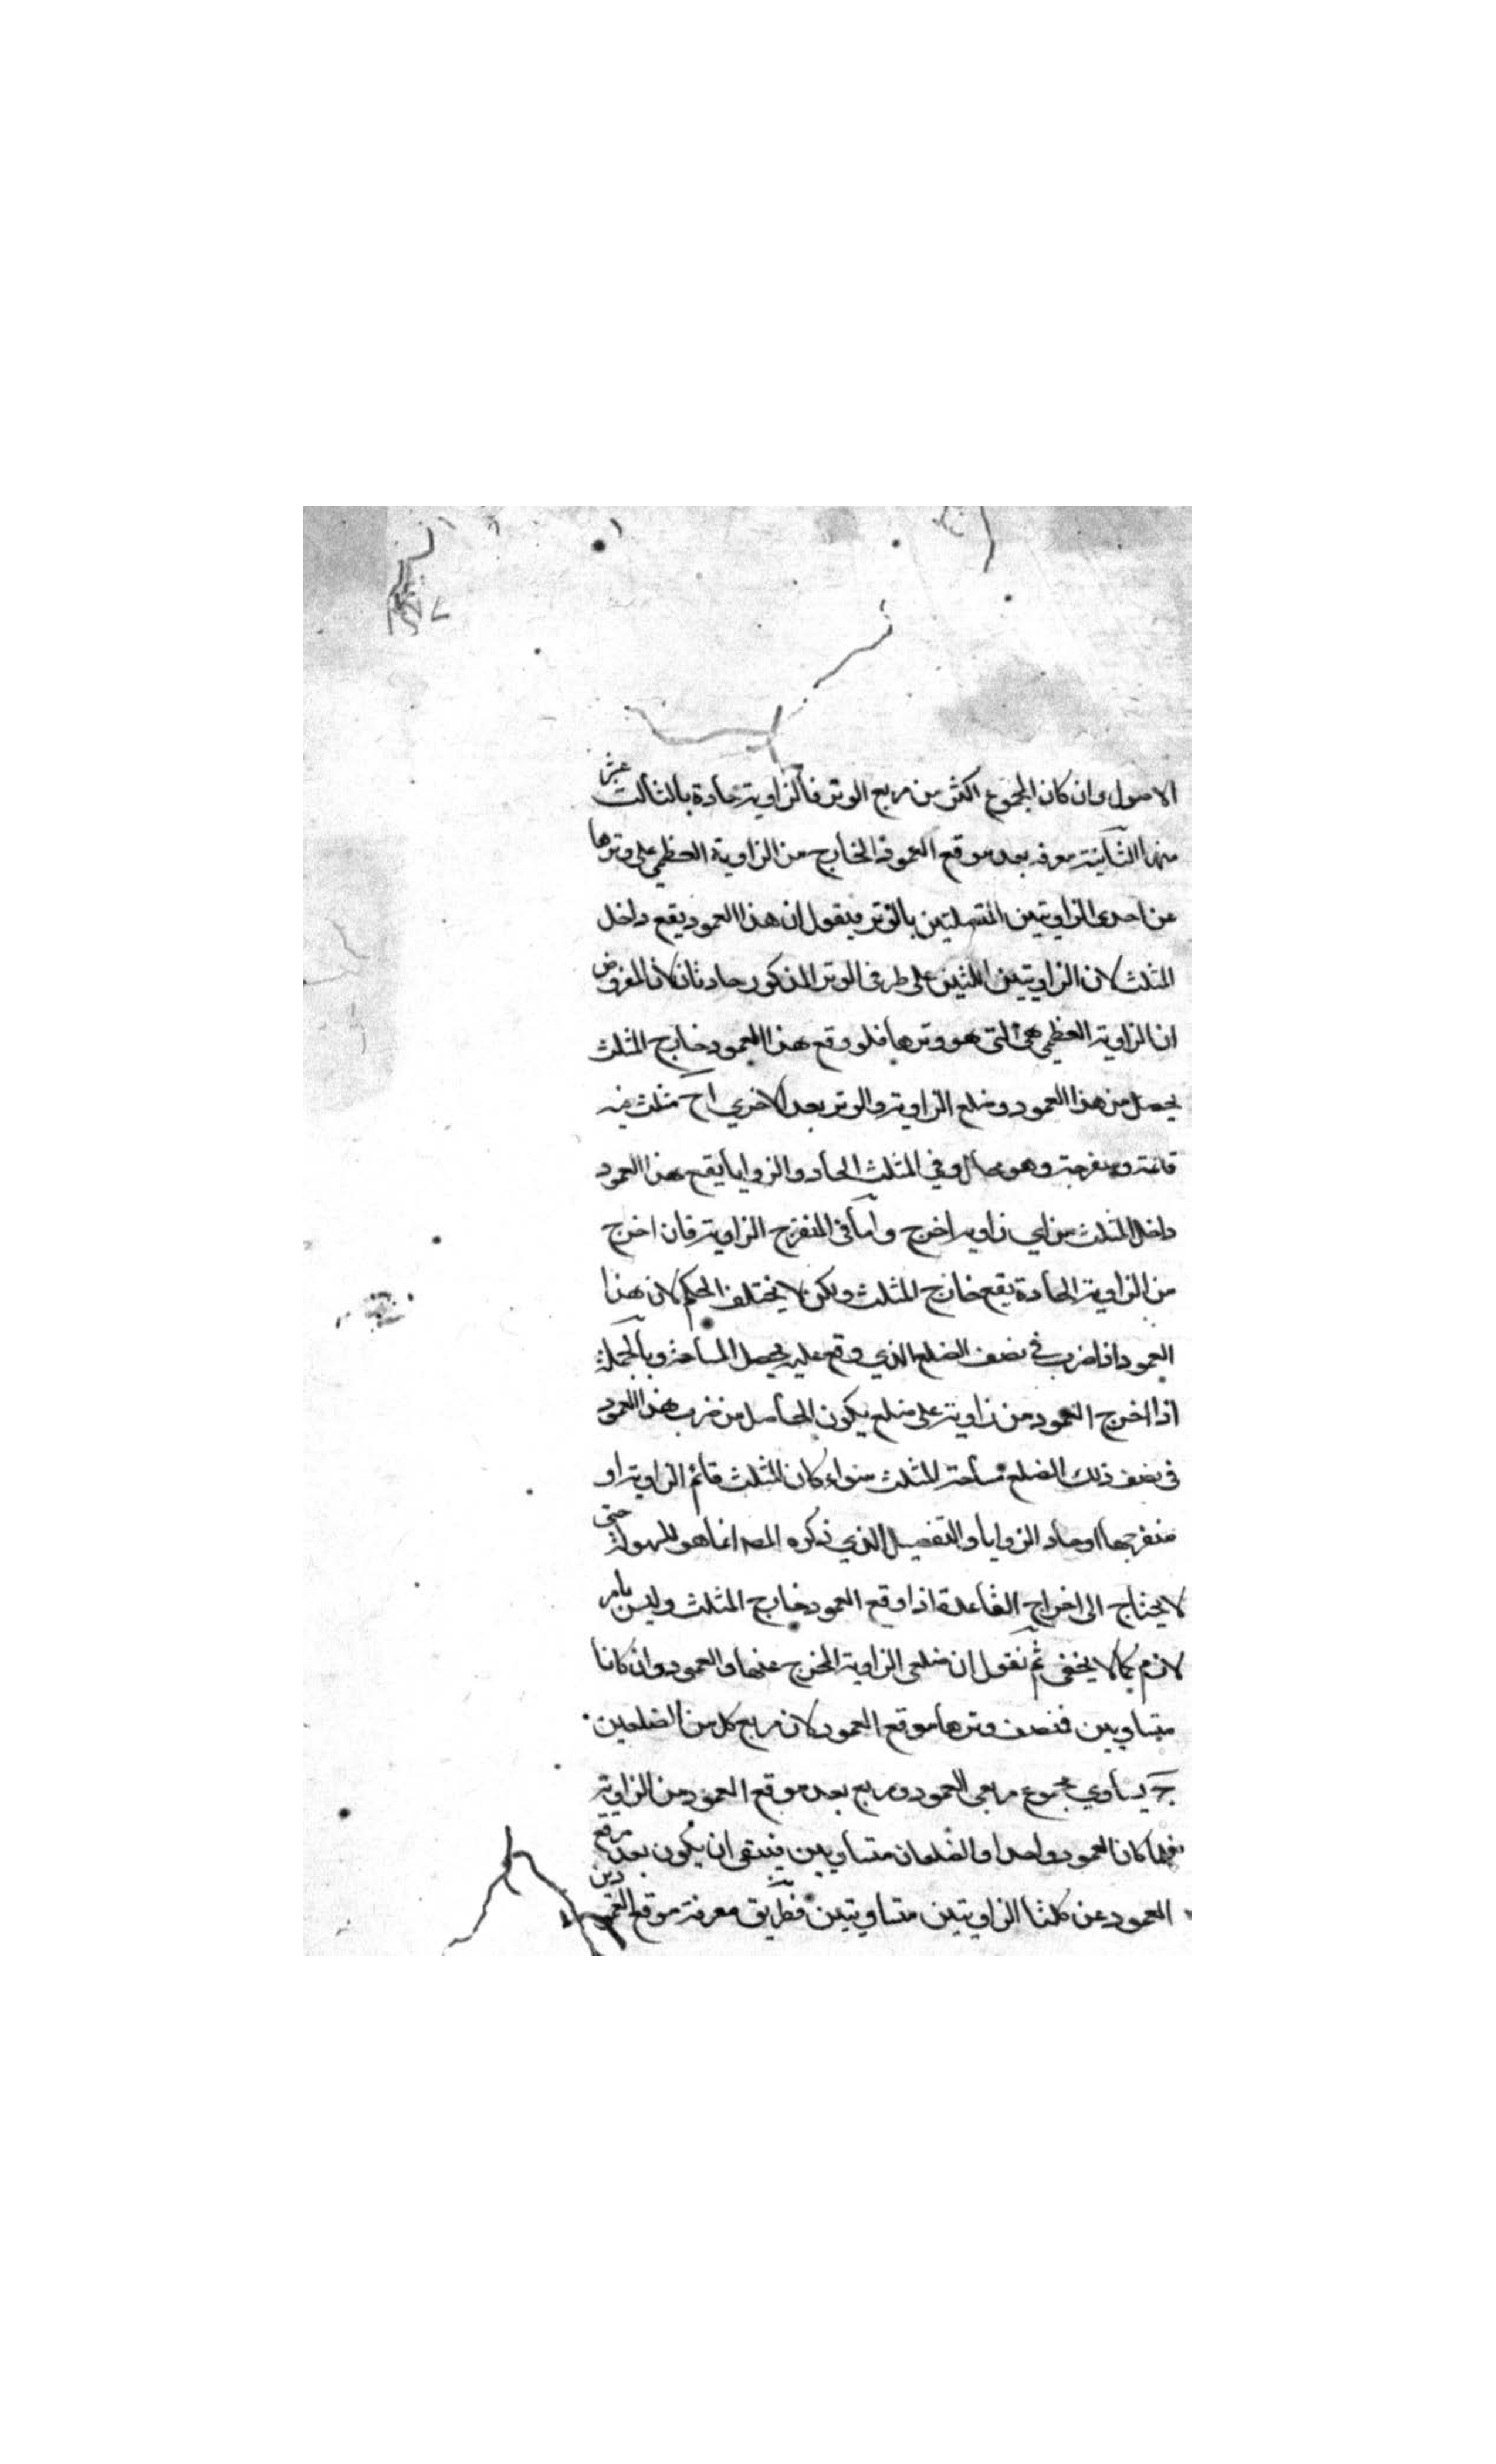 الاصول وان كان المجموع اكثر من مربع الوتر فالزاوية حادة بالثالث عشر
منها الثانية معرفة بعد موقع العمود الخارج من الزاوية العظمى على وترها
عن احدى الزاويتين المتصلتين بالوتر فنقول ان هذا العمود يقع داخل
المثلث لان الزاويتين اللتين على طرفى الوتر المذكور حادتان لان المفروض
ان الزاوية العظمى هى التى هو وترها فلو وقع هذا العمود خارج المثلث
يحصل من هذا العمود وضلع الزاوية والوتر بعد الاخرى اح مثلث فيه
قائمة ومنفرجة وهو محال وفي المثلث الحاد والزوايا يقع هذا العمود
داخل المثلث من اي زاوية اخرج واما فى المنفرج الزاوية فان اخرج
من الزاوية الحادة يقع خارج المثلث ولكن لا يختلف الحكم لان هذا
العمود اذا ضرب في نصف الضلع الذي وقع عليه يحصل المساحة وبالجملة
اذا اخرج العمود من زاوية على ضلع يكون الحاصل من ضرب هذا العمود
فى نصف ذلك الضلع مساحة المثلث سواء كان المثلث قائم الزاوية او
منفرجها او حاد الزوايا والتفصيل الذي ذكره المصـ انما هو للسهولة حتى
لا يحتاج الى اخراج القاعدة اذا وقع العمود خارج المثلث وليس بامر
لازم كما لا يخفى ثم نقول ان ضلعى الزاوية المخرج عنها والعمود وان كانا
متساويين فنصف وترها موقع العمود لان مربع كل من الضلعين
يساوي مجموع مربعى العمود ومربع بعد موقع العمود من الزاوية
فلما كان العمود واحدا والضلعان متساويين فينبغى ان يكون بعد موقع
العمود عن كلتا الزاويتين متساويتين فطريق معرفة موقع العمود